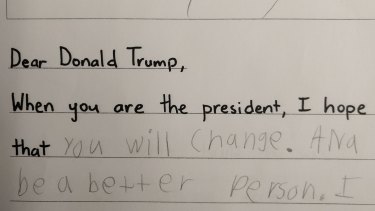 Dear Donald Trump,
When you are the president, I hope
that you will change. And
be a better person. I